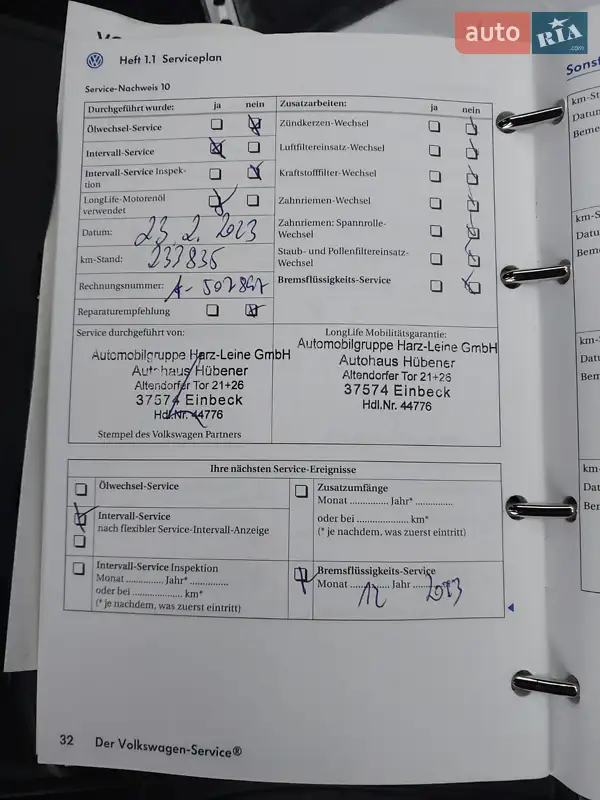 auto RIA .com
Heft 1.1 Serviceplan
Service-Nachweis 10
Durchgeführt wurde: ja nein
Ölwechsel-Service
Intervall-Service
Intervall-Service Inspek-
tion
LongLife-Motorenöl
verwendet
Datum: 23. 2. 2023
km-Stand: 233835
Rechnungsnummer:
Reparaturempfehlung
Zusatzarbeiten: ja nein
Zündkerzen-Wechsel
Luftfiltereinsatz-Wechsel
Kraftstofffilter-Wechsel
Zahnriemen-Wechsel
Zahnriemen: Spannrolle-
Wechsel
Staub- und Pollenfiltereinsatz-
Wechsel
Bremsflüssigkeits-Service
Service durchgeführt von:
Automobilgruppe Harz-Leine GmbH
Autohaus Hübener
Altendorfer Tor 21+26
37574 Einbeck
Hdl.Nr. 44776
Stempel des Volkswagen Partners
LongLife Mobilitätsgarantie:
Automobilgruppe Harz-Leine GmbH
Autohaus Hübener
Altendorfer Tor 21+26
37574 Einbeck
Hdl.Nr. 44776
Ihre nächsten Service-Ereignisse
Ölwechsel-Service
Intervall-Service
nach flexibler Service-Intervall-Anzeige
Intervall-Service Inspektion
Monat .............. Jahr* ..............
oder bei .................. km*
(* je nachdem, was zuerst eintritt)
Zusatzumfänge
Monat .............. Jahr* ..............
oder bei .................. km*
(* je nachdem, was zuerst eintritt)
Bremsflüssigkeits-Service
Monat 12 Jahr 2023
32 Der Volkswagen-Service®
Sonst
km-St
Datum
Beme
km-S
Datu
Bem
km-
Dat
Ber